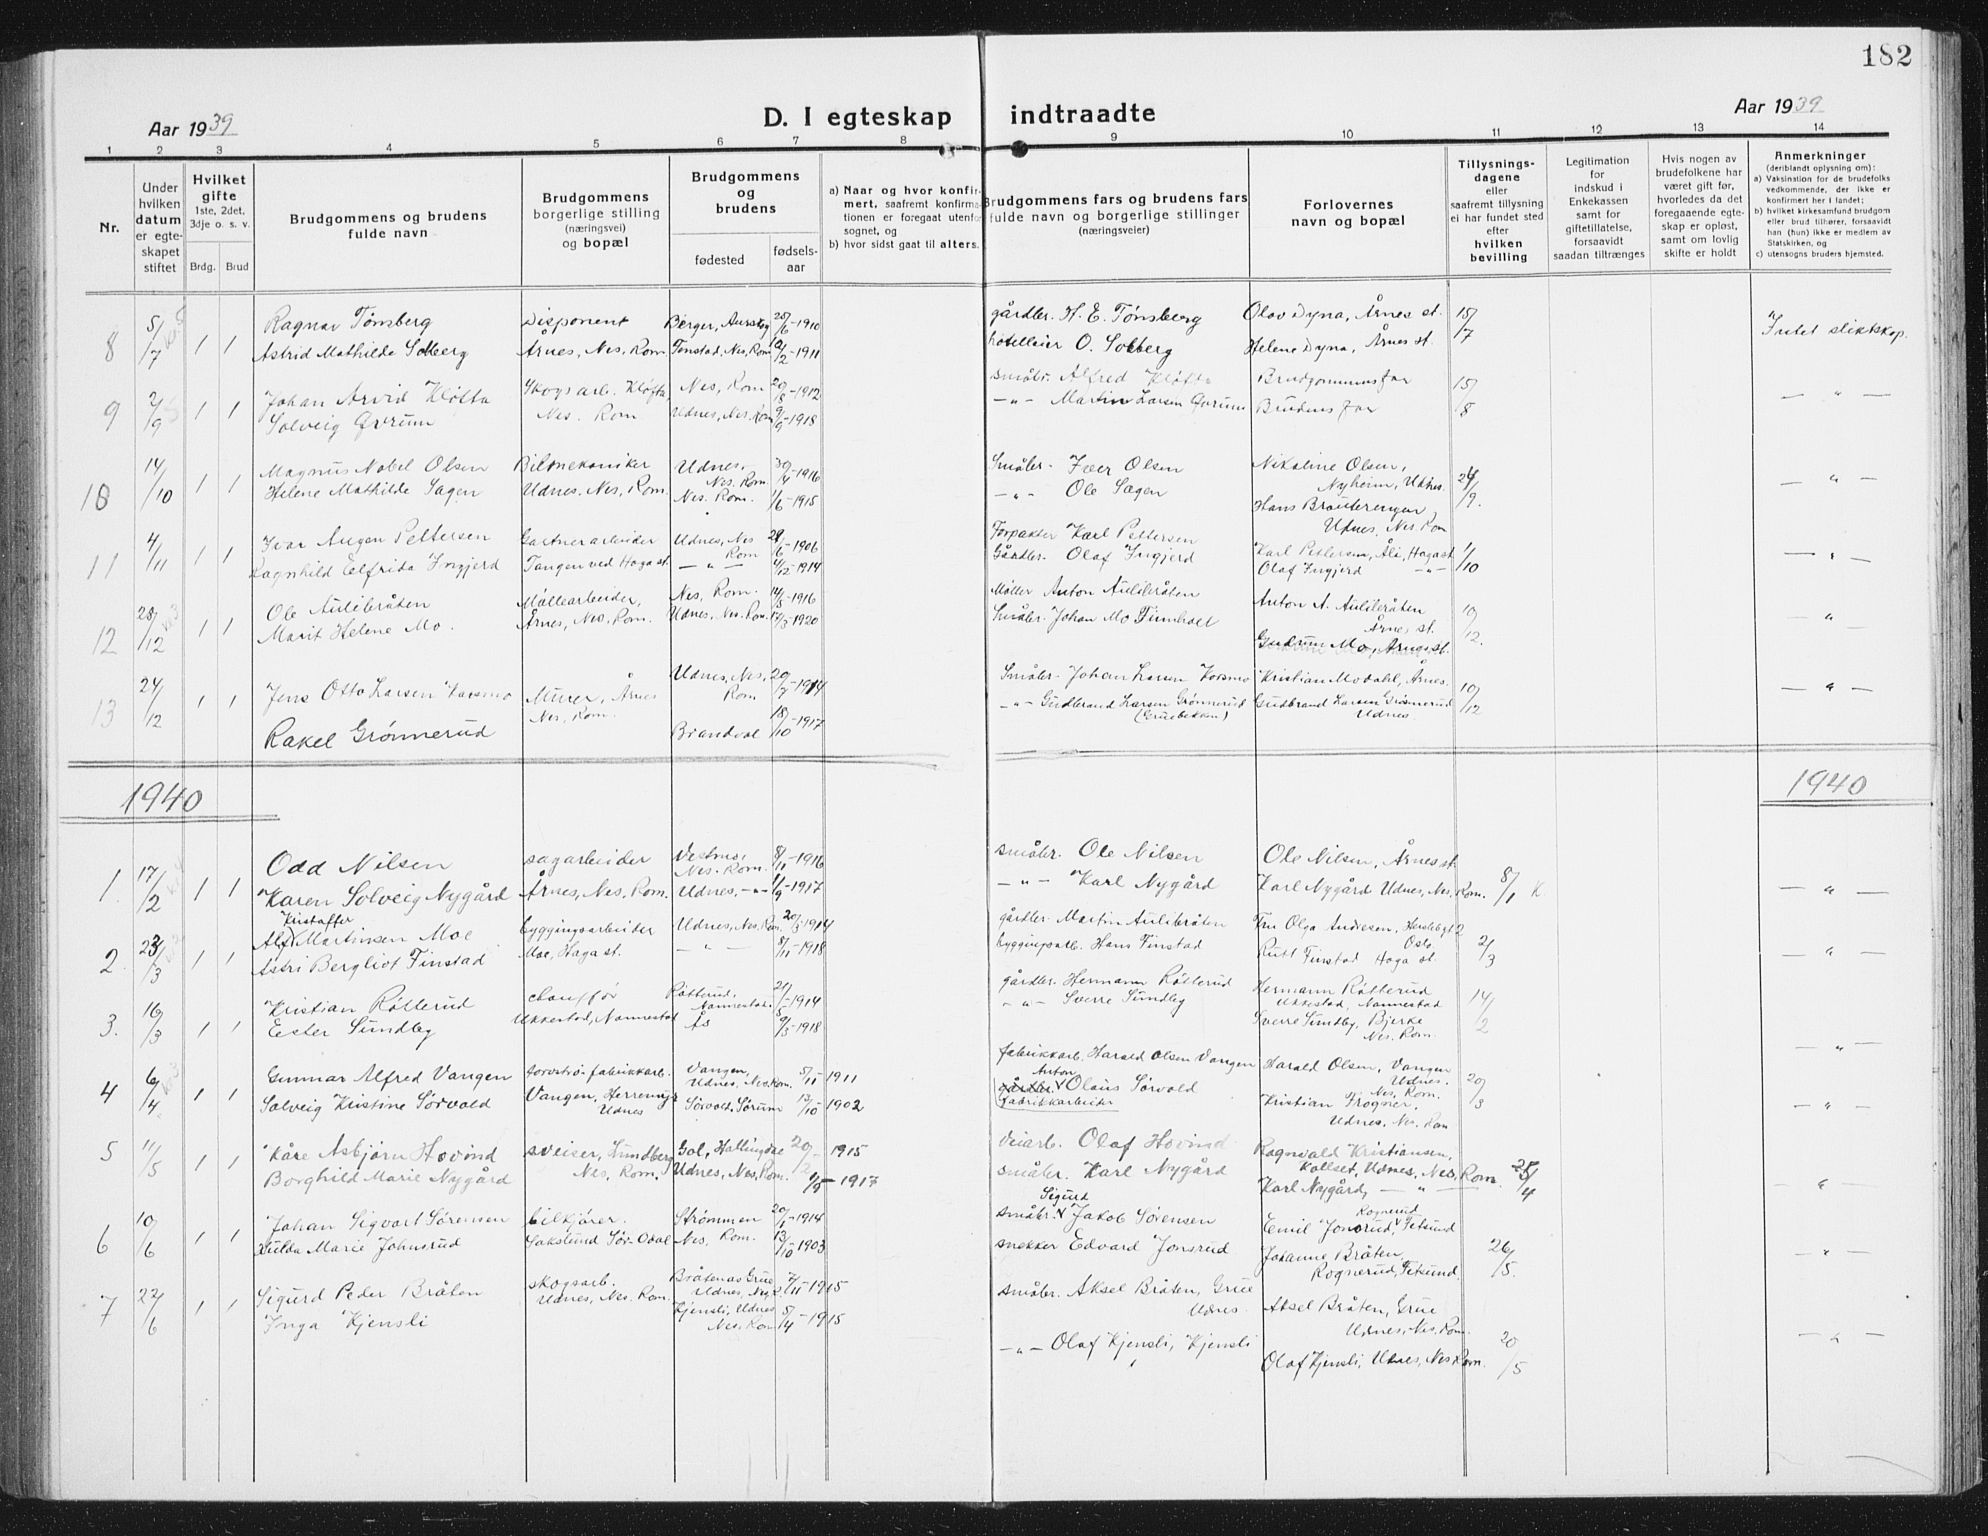 182
Aar 1939
D. I egteskap indtraadte
Aar 1939
1 2 3 4 5 6 7 8 9 10 11 12 13 14
Nr.
Under hvilken datum er egteskapet stiftet
Hvilket gifte 1ste, 2det, 3dje o. s. v.
Brdg. Brud
Brudgommens og brudens fulde navn
Brudgommens borgerlige stilling (næringsvei) og bopæl
Brudgommens og brudens
fødested
fødsels-aar
a) Naar og hvor konfirmert, saafremt konfirmationen er foregaat utenfor sognet, og
b) hvor sidst gaat til alters.
Brudgommens fars og brudens fars fulde navn og borgerlige stillinger (næringsveier)
Forlovernes navn og bopæl
Tillysningsdagene eller saafremt tillysning ei har fundet sted efter hvilken bevilling
Legitimation for indskud i Enkekassen samt for giftetillatelse, forsaavidt saadan tiltrænges
Hvis nogen av brudefolkene har været gift før, hvorledes da det foregaaende egteskap er opløst, samt om lovlig skifte er holdt
Anmerkninger (deriblandt oplysning om):
a) Vaksination for de brudefolks vedkommende, der ikke er konfirmert her i landet;
b) hvilket kirkesamfund brudgom eller brud tilhører, forsaavidt han (hun) ikke er medlem av Statskirken, og
c) utensogns bruders hjemsted.
8 5/7 1 1 Ragnar Tønsberg Disponent Berger, Aurskog 25/6-1910 gårdbr. H. E. Tønsberg Olav Dyna, Årnes st. 15/7 Intet sliktskap.
Astrid Mathilde Solberg Årnes, Nes, Rom. Fenstad, Nes, Rom 12/2-1911 hotelleier O. Solberg Helene Dyna, Årnes st.
9 2/9 1 1 Johan Arvid Kløfta Skogsarb. Kløfta Nes, Rom 20/8-1912 småbr. Alfred Kløfta Brudgommens far 15/8 — " —
Solveig Øvrum Nes. Rom Udnes, Nes, Rom 9/9-1918 — " — Martin Larsen Øvrum Brudens far
10 14/10 1 1 Magnus Nobel Olsen Bilmekaniker Udnes, Nes. Rom. 30/4-1916 Småbr. Iver Olsen Nikoline Olsen, Nyheim, Udnes. 24/9. — " —
Helene Mathilde Sagen Udnes, Nes, Rom. Nes. Rom. 1/6-1915 — " — Ole Sagen Hans Brauterengen, Udnes, Nes Rom
11 4/11 1 1 Ivar Augen Pettersen Gartnerarbeider Udnes, Nes Rom 29/6-1906 Forpakter Karl Pettersen Karl Pettersen, Åli, Haga st 1/10 — " —
Ragnhild Elfrida Ingjerd Tangen ved Haga st. — " — 4/12-1914 Gårdbr. Olaf Ingjerd Olaf Ingjerd — " —
12 28/12 1 1 Ole Aulibråten Møllearbeider, Nes, Rom. 14/5-1916 Møller Anton Aulibråten Anton A. Aulibråten Årnes st. 10/12. — " —
Marit Helene Mo. Årnes, Nes, Rom. Udnes, Nes, Rom. 17/3-1920 Småbr. Johan Mo Gudrun Mo, Årnes st.
13 24/12 1 1 Jens Otto Larsen Korsmo Murer, Årnes Nes, Rom. Udnes, Nes, Rom 20/7-1914 Småbr. Johan Larsen Korsmo Kristian Modahl, Årnes. 10/12 — " —
Rakel Grønnerud Brandval 18/10-1917 — " — Gudbrand Larsen Grønnerud (Gruebekken) Gudbrand Larsen Grønnerud Udnes.
1940 1940
1. 17/2 1 1 Odd Nilsen sagarbeider Vestmo, Nes. Rom. 8/11-1916 småbr. Ole Nilsen Ole Nilsen, Årnes st. 8/1 K — " —
Karen Solveig Nygård Årnes, Nes, Rom. Udnes, — " — 11/9-1917 — " — Karl Nygård Karl Nygård Udnes, Nes, Rom.
2. 23/3 1 1 Alf Kristoffer Martinsen Moe byggingsarbeider Udnes, Nes, Rom. 20/3-1914 gårdbr. Martin Aulibråten Fru Olga Andresen, Herslebgt 2 Oslo. 2/3 — " —
Astri Bergliot Finstad Moe, Haga st. — " — 8/11-1918 byggingsarb. Hans Finstad Rutt Finstad Haga st.
3. 16/3 1 1 Kristian Røtterud chauffør Røtterud, Nannestad 21/5-1914 gårdbr. Hermann Røtterud Hermann Røtterud Ukkestad, Nannestad 14/2 — " —
Ester Sundby Ukkestad, Nannestad Ås 9/3-1918 — " — Sverre Sundby Sverre Sundby, Bjerke Nes, Rom.
4 6/4. 1 1 Gunnar Alfred Vangen torvstrø-fabrikkarb. Vangen, Udnes, Nes, Rom. 5/11-1911 fabrikkarb. Harald Olsen Vangen Harald Olsen, Vangen Udnes. Nes, Rom. 20/3 — " —
Solveig Kristine Sørvald Vangen, Herrenyr Udnes Sørvald, Sørum 13/10-1902 gårdbr. Anton Olaus Sørvald fabrikkarbeider Kristian Frogner, Udnes, Nes, Rom
5 11/5 1 1 Kåre Asbjørn Hovind sveiser, Lundberg Nes, Rom. Gol, Hallingdal 20/2-1915 Veiarb. Olaf Hovind Ragnvald Kristiansen, Kollset, Udnes, Nes, Rom. 25/4 — " —
Borghild Marie Nygård Udnes, Nes, Rom. -1917 småbr. Karl Nygård Karl Nygård, — " —
6 10/6 1 1 Johan Sigvart Sørensen bilkjører. Strømmen 20/1-1914 småbr. Sigurd Jakob Sørensen Emil Jonsrud, Rognerud Fetsund 26/5. — " —
Hulda Marie Johnsrud Sakslund Sør-Odal Nes. Rom. 13/10-1903 snekker Edvard Jonsrud Johanne Bråten, Rognerud, Fetsund.
7 22/6 1 1 Sigurd Peder Bråten skogsarb. Udnes, Nes. Rom. Bråtenas Grue Udnes, Nes R. 7/11-1915 småbr. Aksel Bråten, Grue Udnes. Aksel Bråten, Grue Udnes, Nes, Rom. 20/5 — " —
Inga Kjensli Kjensli, Udnes Nes, Rom 5/4-1915 — " — Olaf Kjensli, Kjensli Olaf Kjensli, Udnes, Nes Rom.